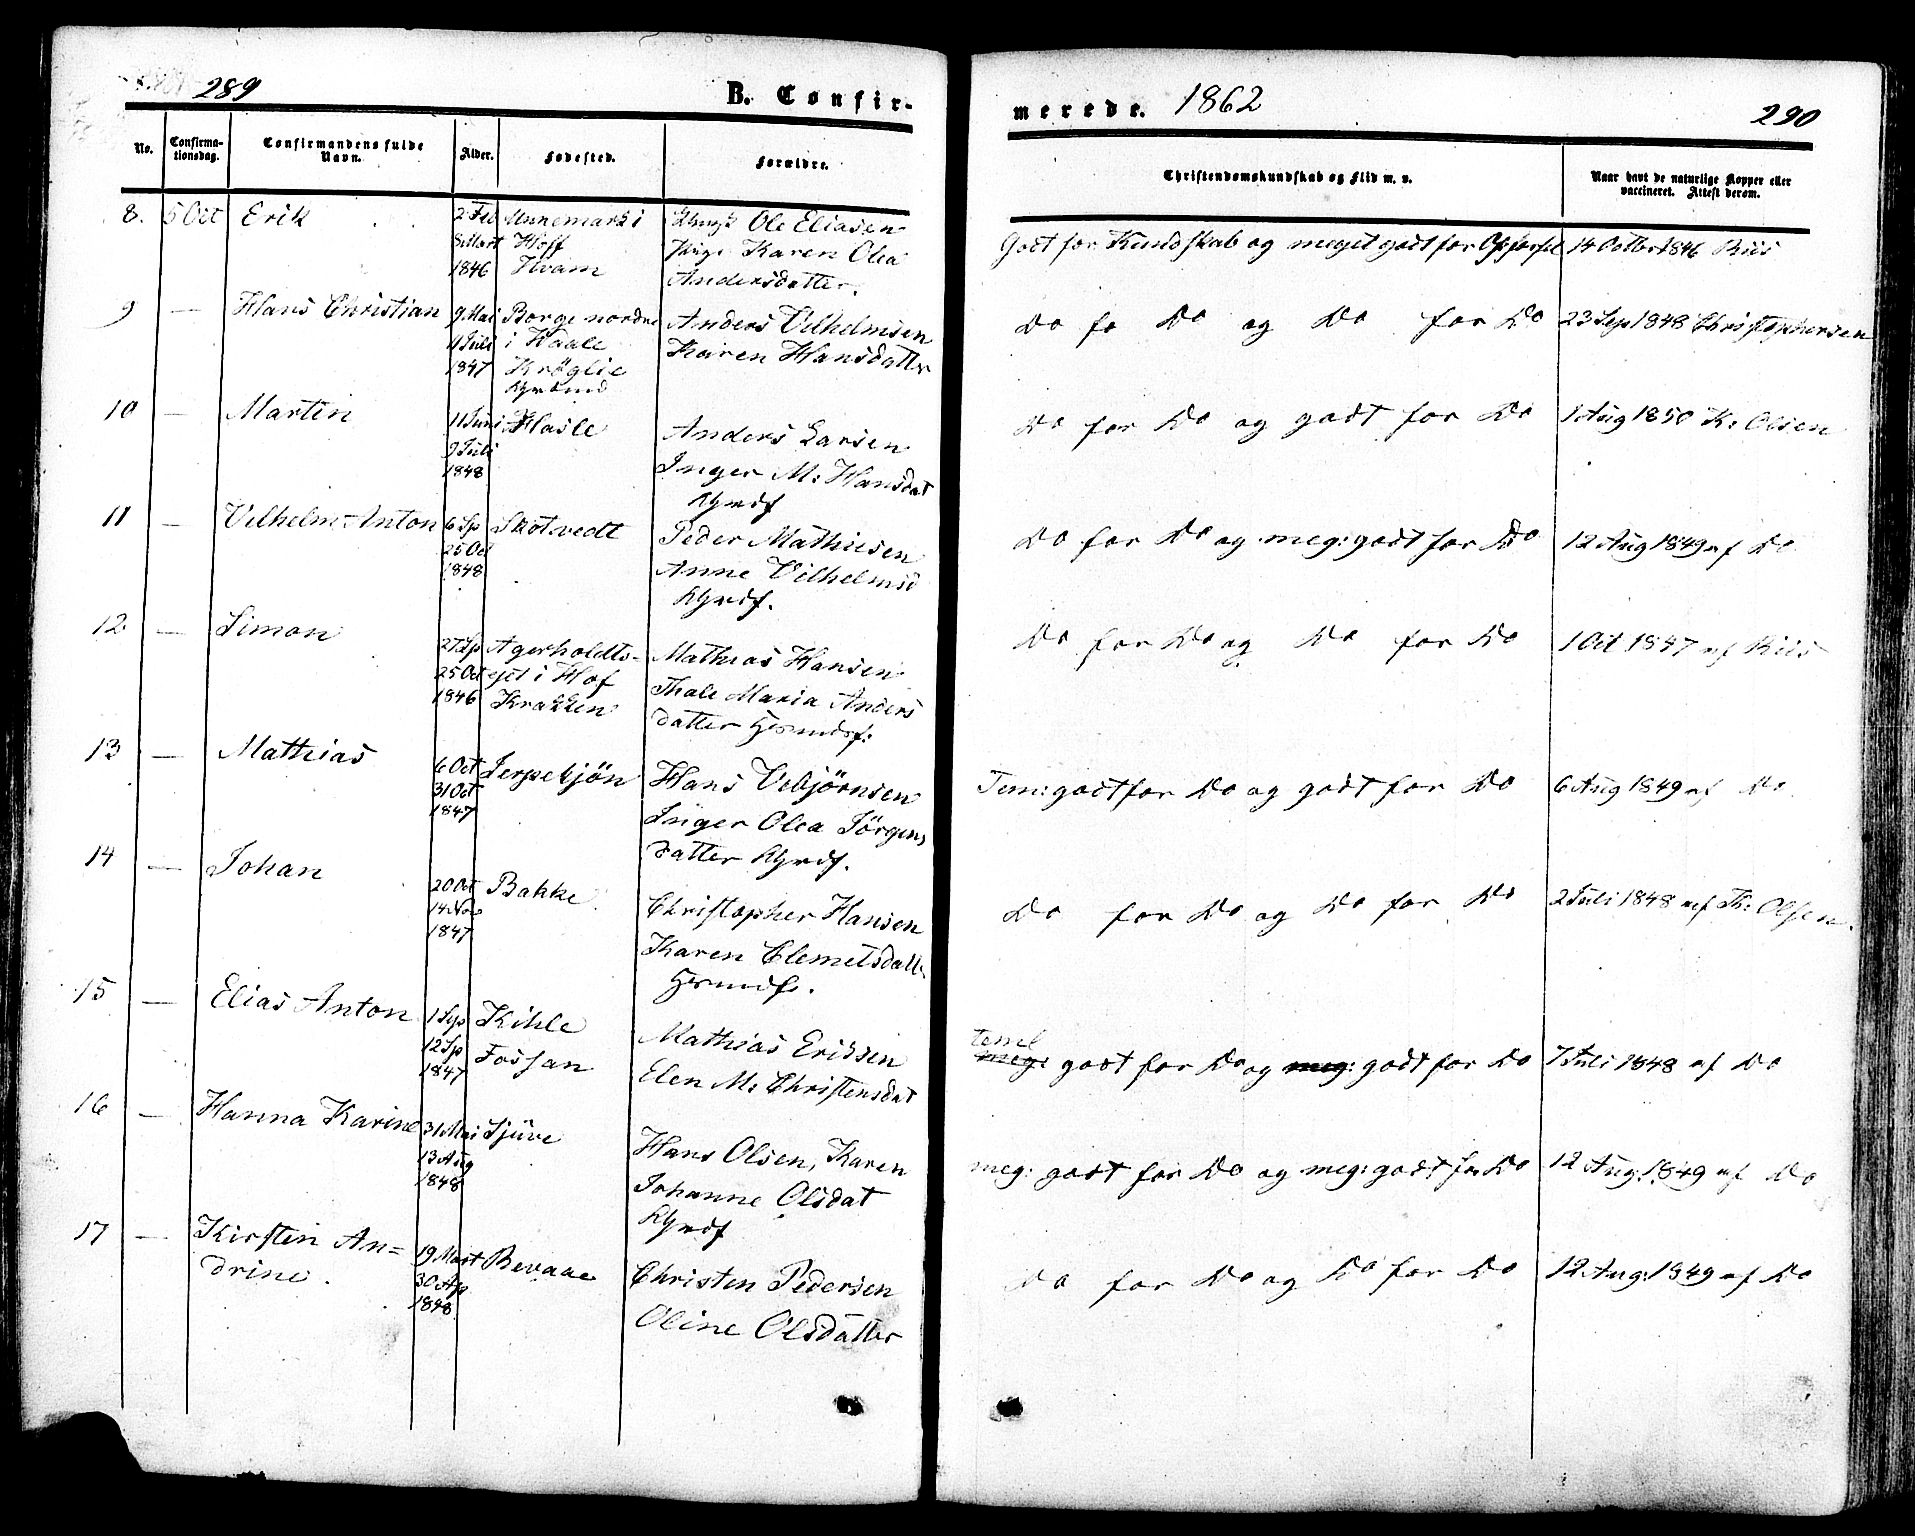 289
B. Confir-
No.
Confirma-
tionsdag.
Confirmandens fulde
Navn.
Alder.
Fødested.
Forældre.
8. 5 Oct Erik
2 Feb
8 Mart
1846
Unnemark i
Hoff
Hvam
Ole Eliasen
Karen Olea
Andersdatter.
9 — Hans Christian
9 Mai
11 Juli
1847
Borge nordre
i Haale
Krøglie
Anders Vilhelmsen
Karen Hansdatter
10 — Martin
11 Juni
9 Juli
1848
Hasle
Anders Larsen
Inger M: Hansdat
11 — Vilhelm Anton
6 Sp
25 Oct
1848
Skotvedt
Peder Mathiesen
Anne Vilhelmsd
12 — Simon
27 Sp
25 Oct
1846
Agerholdts-
ejet i Hof
Krakken
Mathias Hansen
Thale Maria Anders
datter
13 — Mathias
6 Oct
31 Oct
1847
Jerpekjön
Hans Vebjörnsen
Inger Olea Jörgens
datter
14 — Johan
20 Oct
14 Nov
1847
Bakke
Christopher Hansen
Karen Clemetsdatt
15 — Elias Anton
1 Sep
12 Sp
1847
Kihle
Fossan
Mathias Ericksen
Elen M: Christensdat
16 — Hanna Karine
31 Mai
13 Aug
1848
Sjüve
Hans Olsen, Karen
Johanne Olsdat
17 — Kirstin An=
drine.
19 Mart
30 Ap
1848
Bevaae
Christen Pedersen
Oline Olsdatter
merede. 1862
290
Christendomskundskab og Flid m. v.
Naar havt de naturlige Kopper eller
vaccineret. Attest derom.
Godt for Kundskab og meget godt for Opførsel 14 Octbr 1846 Riis
Do fo Do og Do for Do 23 Sep 1848 Christophersen
Do for Do og godt for Do 1 Aug 1850 K: Olsen
Do for Do og meg: godt for Do 12 Aug 1849 af Do
Do for Do og Do for Do 1 Oct 1847 af Riis
Tem: godt for Do og godt for Do 6 Aug 1849 af Do
Do for Do og Do for Do 2 Juli 1848 af Th: Olsen.
temel
meg: godt for Do og meg: godt for Do 7 Juli 1848 af Do
meg: godt for Do og meg: godt for Do 12 Aug: 1849 af Do
Do for Do og Do for Do 12 Aug: 1849 af Do